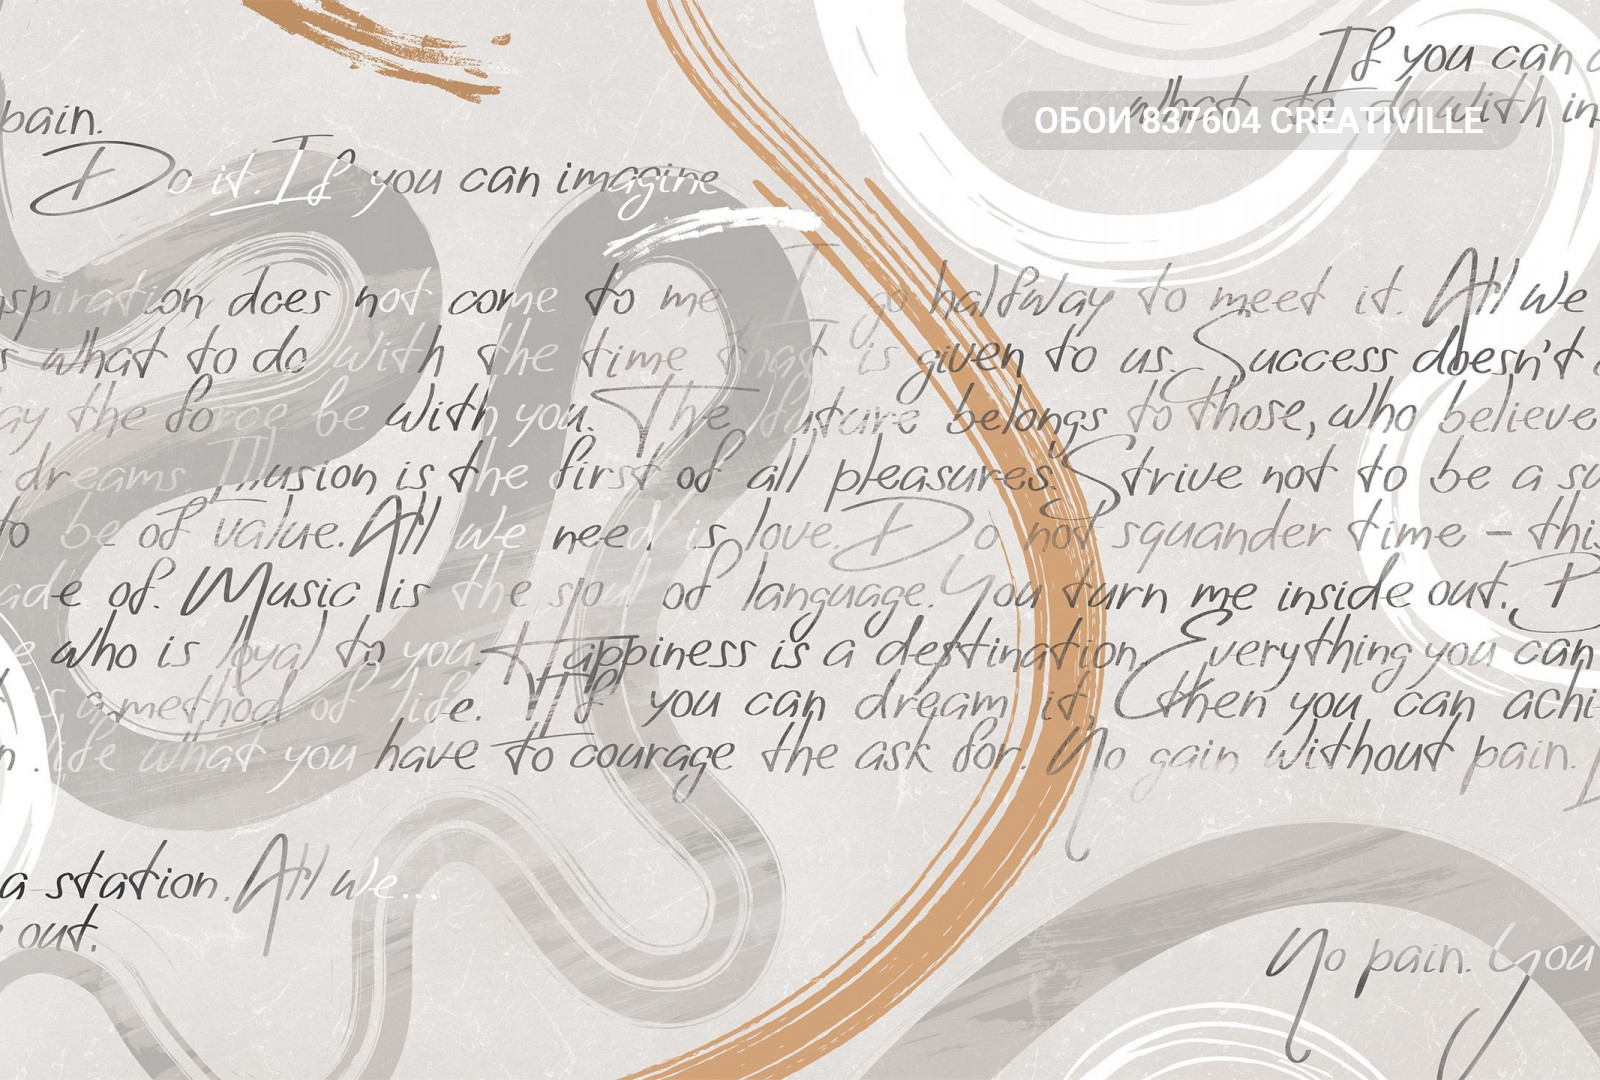 If you can
what to do with in
ОБОИ 837604 CREATIVILLE
pain.
Do it. If you can imagine
spiration does not come to me I go halfway to meet it. All we
s what to do with the time that is given to us. Success doesn't
ay the force be with you. The future belongs to those, who believe
dreams. Illusion is the first of all pleasures. Strive not to be a su
to be of value. All we need is love. Do not squander time – this
ade of. Music is the soul of language. You turn me inside out.
e who is loyal to you. Happiness is a destination. Everything you can
is a method of life. If you can dream it, then you can achi
n. life what you have to courage the ask for. No gain without pain.
a station. All we...
out.
No pain. You